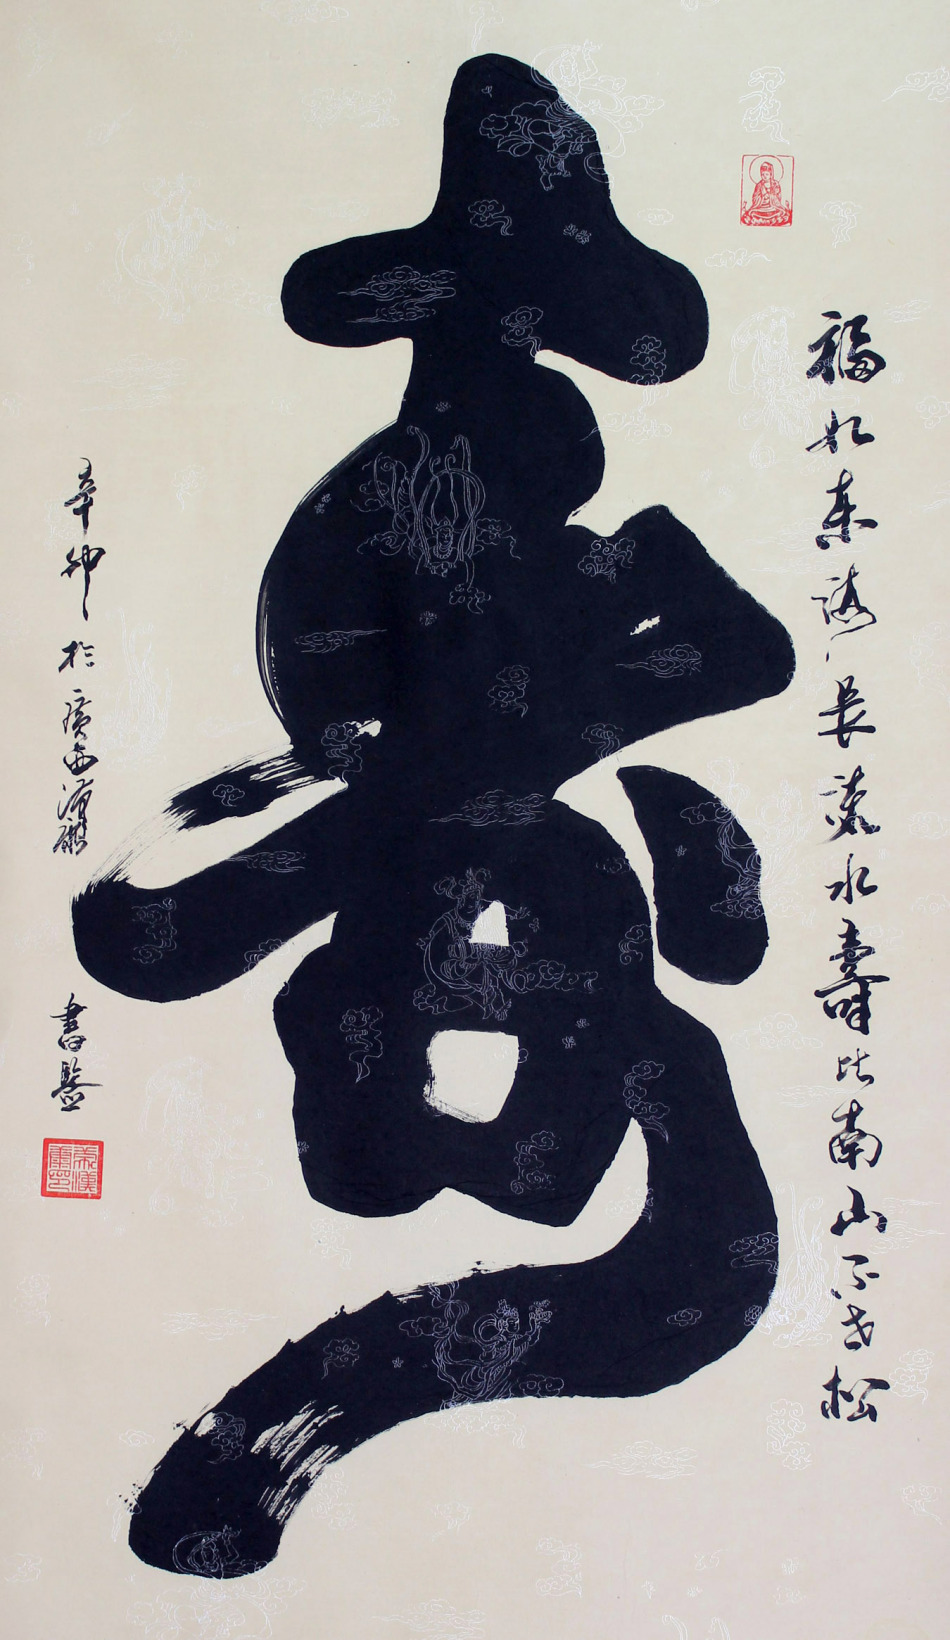 福如東海長流水壽比南山不老松
壽
辛卯於廣西
書